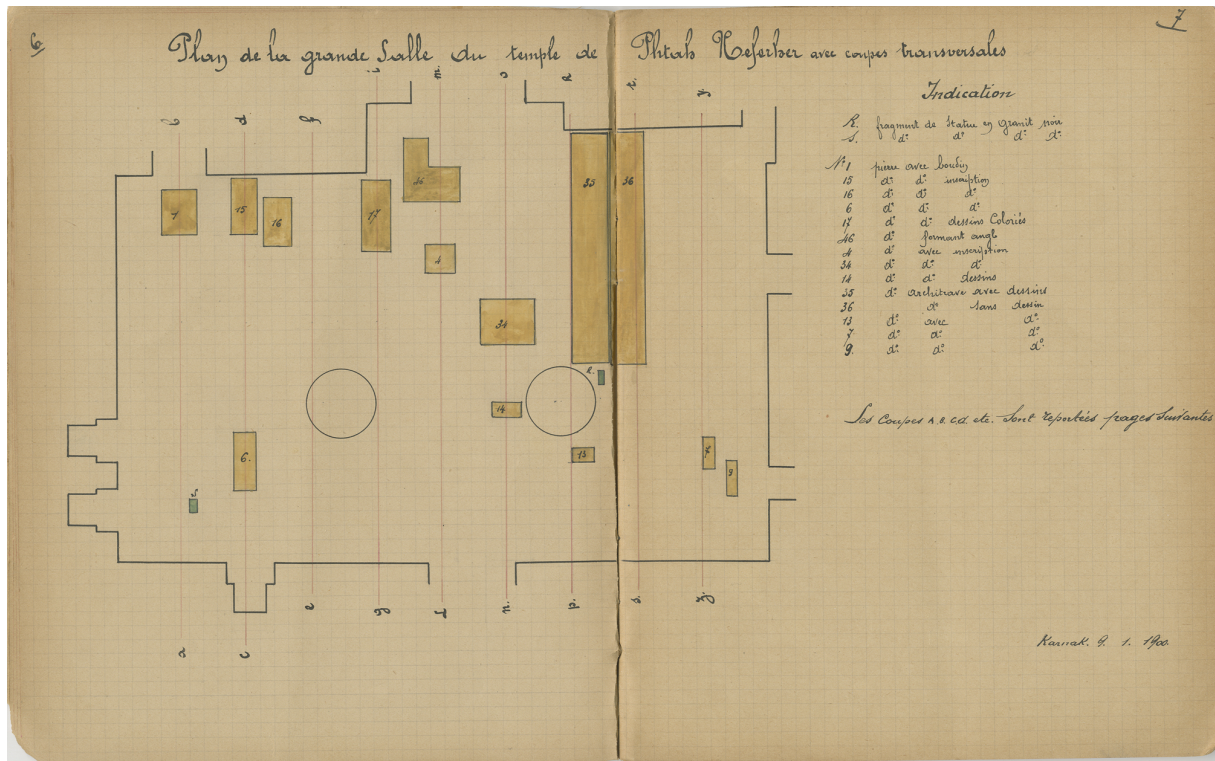 6
7
Plan de la grande Salle du temple de Phtah Neferher avec coupes transversales
i m o r
b d f
z
Indication
R. fragment de Statue en granit noir
S. d° d° d° d°
N° 1 pierre avec boudin
15 d° d° inscription
16 d° d° d°
6 d° d° d°
17 d° d° dessins Coloriés
46 d° formant angle
4 d° avec inscription
34 d° d° d°
14 d° d° dessins
35 d° architrave avec dessins
36 d° sans dessin
13 d° avec d°
7 d° d° d°
9. d° d° d°
1
15
16
17
46
4
35
36
34
R.
14
13
7
9
6.
S
Les Coupes A. B. C. d. etc. sont reportées pages suivantes
e g l n. p. s.
a c
Karnak. 9. 1. 1900.